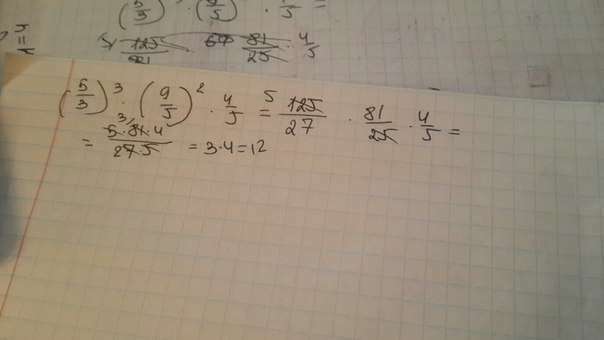 (5/3)³ · (9/5)² · 4/5 =
125/ 81/25 · 4/5
(5/3)³ · (9/5)² · 4/5 = 5 125/27 · 81/25 · 4/5 =
= 3 5·81·4/27·5 = 3·4=12